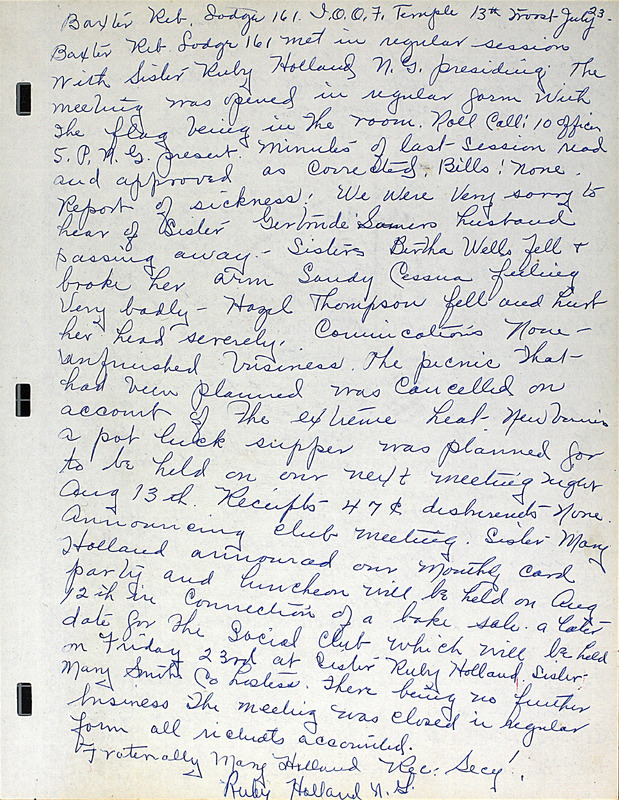 Baxter Reb. Lodge 161. I.O.O.F. Temple 13th Troost July 23-
Baxter Reb Lodge 161 met in regular session
with Sister Ruby Holland N.G. presiding. The
meeting was opened in regular form with
the flag being in the room. Roll Call! 10 officers
5. P.N.G. present. Minutes of last session read
and approved as corrected. Bills! none.
Report of sickness! We were very sorry to
hear of Sister Gertrude Somers husband
passing away - Sisters Bertha Wells fell &
broke her arm Sandy Cessna feeling
very badly - Hazel Thompson fell and hurt
her head severely. Comunications None -
unfinished business. The picnic that
had been planned was cancelled on
account of the extreme heat. New
a pot luck supper was planned for
to be held on our next meeting night
Aug 13th. Receipts 47¢ disbursents None.
Announcing club meeting. Sister Mary
Holland announed our monthly card
party and luncheon will be held on Aug
12th in connection of a bake sale. a later
date for the Social Club which will be held
on Friday 23rd at Sister Ruby Holland. Sister
Mary Smith Co hostess. There being no further
business the meeting was closed in regular
form all accounted.
Fraternally Mary Holland Rec. Secy!
Ruby Holland N.G.